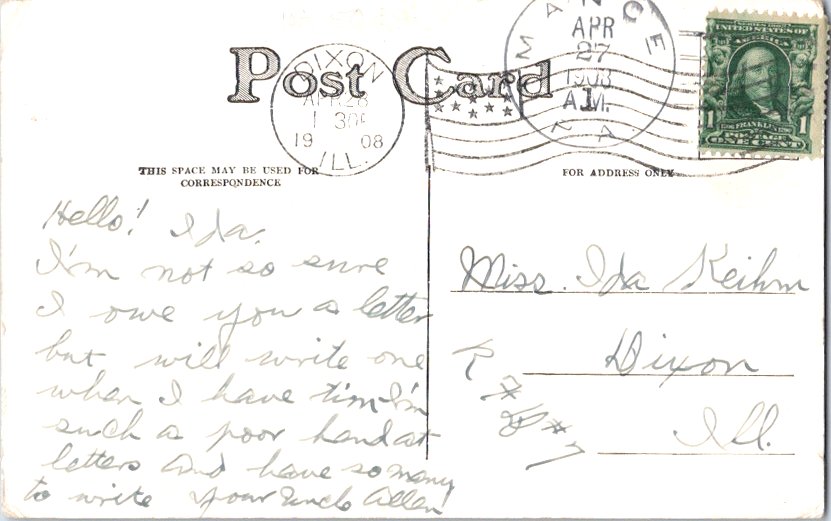 Post Card
DIXON
APR 28
1 30P
19 08
ILL.
MANCE
APR
27
1908
A.M.
IA
SERIES 1902
UNITED STATES OF
AMERICA
1 FRANKLIN 1
POSTAGE
ONE CENT
THIS SPACE MAY BE USED FOR
CORRESPONDENCE
FOR ADDRESS ONLY
Hello! Ida.
I'm not so sure
I owe you a letter
but will write one
when I have tim I'm
such a poor hand at
letters and have so many
to write your Uncle Allen
Miss. Ida Keihm
Dixon
Ill.
R F D #7